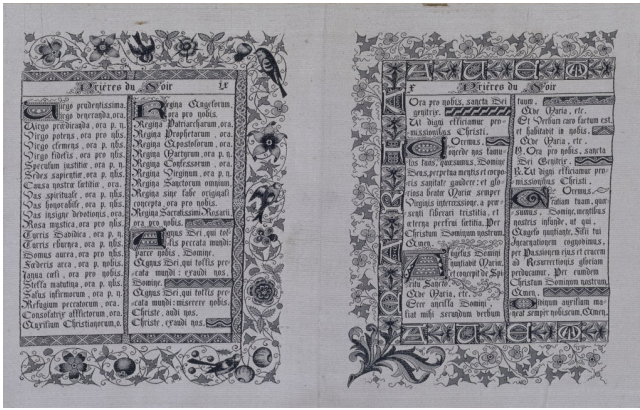 Prières du Soir ix
Virgo prudentissima,
Virgo veneranda, ora.
Virgo prædicanda, ora p. n.
Virgo potens, ora pro nbs.
Virgo clemens, ora p. nbs.
Virgo fidelis, ora pro nbs.
Speculum justitiæ, ora p.
Sedes sapientiæ, ora p. nbs.
Causa nostræ lætitiæ, ora.
Vas spirituale, ora p. nbs.
Vas honorabile, ora p. nbs.
Vas insigne devotionis, ora.
Rosa mystica, ora pro nbs.
Turris Davidica, ora p. nbs.
Turris eburnea, ora p. nbs.
Domus aurea, ora p. nbs.
Fœderis arca, ora p. nbs.
Janua cœli, ora pro nobis.
Stella matutina, ora p. nbs.
Salus infirmorum, ora p. n.
Refugium peccatorum, ora.
Consolatrix afflictorum, ora.
Auxilium Christianorum, o.
Regina Angelorum,
ora pro nobis.
Regina Patriarcharum, ora.
Regina Prophetarum, ora.
Regina Apostolorum, ora.
Regina Martyrum, ora p. n.
Regina Confessorum, ora.
Regina Virginum, ora p. n.
Regina Sanctorum omnium.
Regina sine labe originali
concepta, ora pro nobis.
Regina Sacratissimi Rosarii
ora pro nobis.
Agnus Dei, qui tol-
lis peccata mundi:
parce nobis, Domine.
Agnus Dei, qui tollis pec-
cata mundi: exaudi nos,
Domine.
Agnus Dei, qui tollis pec-
cata mundi: miserere nobis.
Christe, audi nos.
Christe, exaudi nos.
x Prières du Soir
Ora pro nobis, sancta Dei
genitrix.
Ut digni efficiamur pro-
missionibus Christi.
Oremus.
Concede nos famu-
los tuos, quæsumus, Domine
Deus, perpetua mentis et corpo-
ris sanitate gaudere: et glo-
riosa beatæ Mariæ semper
Virginis intercessione, a præ-
senti liberari tristitia, et
æterna perfrui lætitia. Per
Christum Dominum nostrum.
Amen.
Angelus Domini
nuntiavit Mariæ
et concepit de Spi-
ritu Sancto.
Ave Maria, etc.
Ecce ancilla Domini
fiat mihi secundum verbum
tuum.
Ave Maria, etc.
Et Verbum caro factum est,
et habitavit in nobis.
Ave Maria, etc.
℣. Ora pro nobis, sancta
Dei Genitrix.
℟. Ut digni efficiamur pro-
missionibus Christi.
Oremus.
Gratiam tuam, quæ-
sumus, Domine, mentibus
nostris infunde, ut qui,
Angelo nuntiante, Filii tui
Incarnationem cognovimus,
per Passionem ejus et crucem
ad Resurrectionis gloriam
perducamur. Per eundem
Christum Dominum nostrum.
Amen.
Divinum auxilium ma-
neat semper nobiscum. Amen.